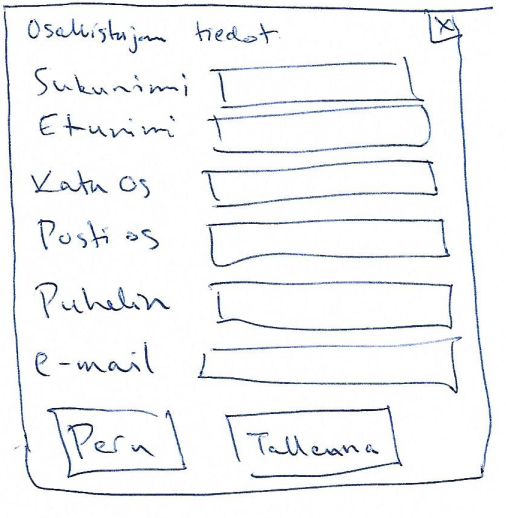 Osallistujan tiedot X
Sukunimi
Etunimi
Katu os
Posti os
Puhelin
e-mail
Peru Tallenna